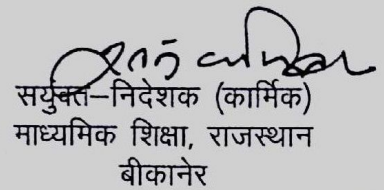 सयुंक्त–निदेशक (कार्मिक)
माध्यमिक शिक्षा, राजस्थान
बीकानेर